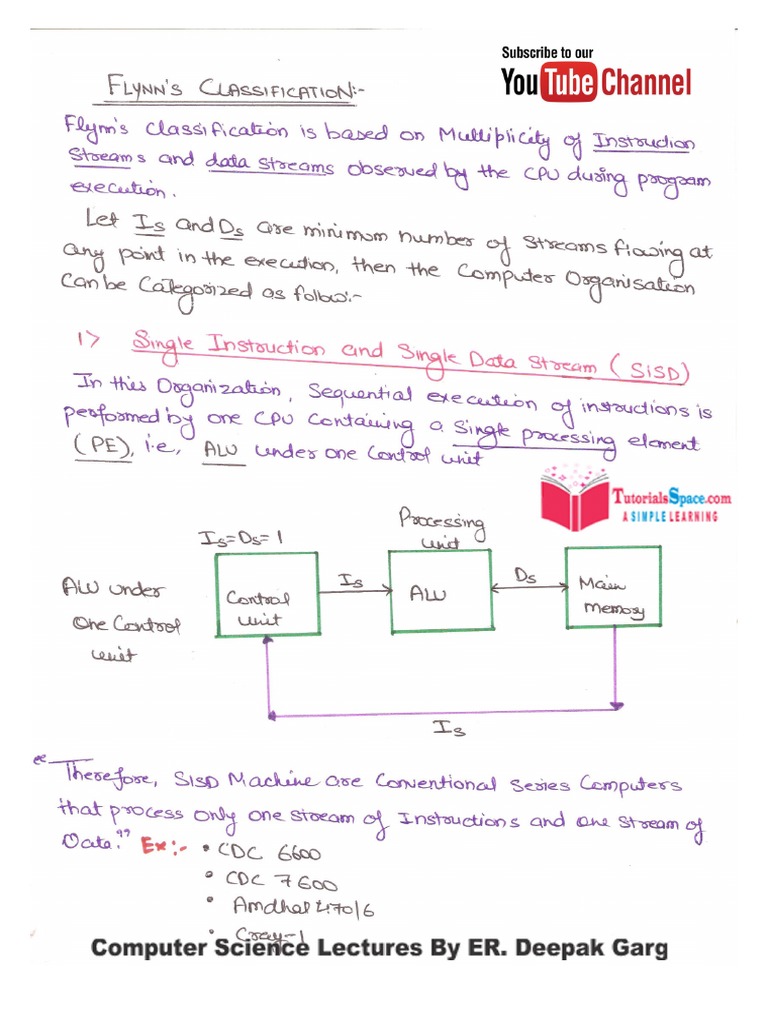 Subscribe to our
YouTube Channel
FLYNN'S CLASSIFICATION:-
Flynn's classification is based on Multiplicity of Instruction
Streams and data streams observed by the CPU during program
execution.
Let Is and Ds are minimum number of streams flowing at
any point in the execution, then the Computer Organisation
Can be Categorized as follow:-
1> Single Instruction and Single Data Stream (SISD)
In this Organization, Sequential execution of instructions is
performed by one CPU Containing a Single processing element
(PE), i.e, ALU under one Control unit
TutorialsSpace.com
A SIMPLE LEARNING
Is=Ds=1
Processing
unit
ALU under
One Control
unit
Control
unit
Is
ALU
Ds
Main
Memory
Is
"Therefore, SISD Machine are Conventional Series Computers
that process only one stream of Instructions and one stream of
Data." Ex:- • CDC 6600
• CDC 7600
• Amdhal 470/6
• Cray-1
Computer Science Lectures By ER. Deepak Garg